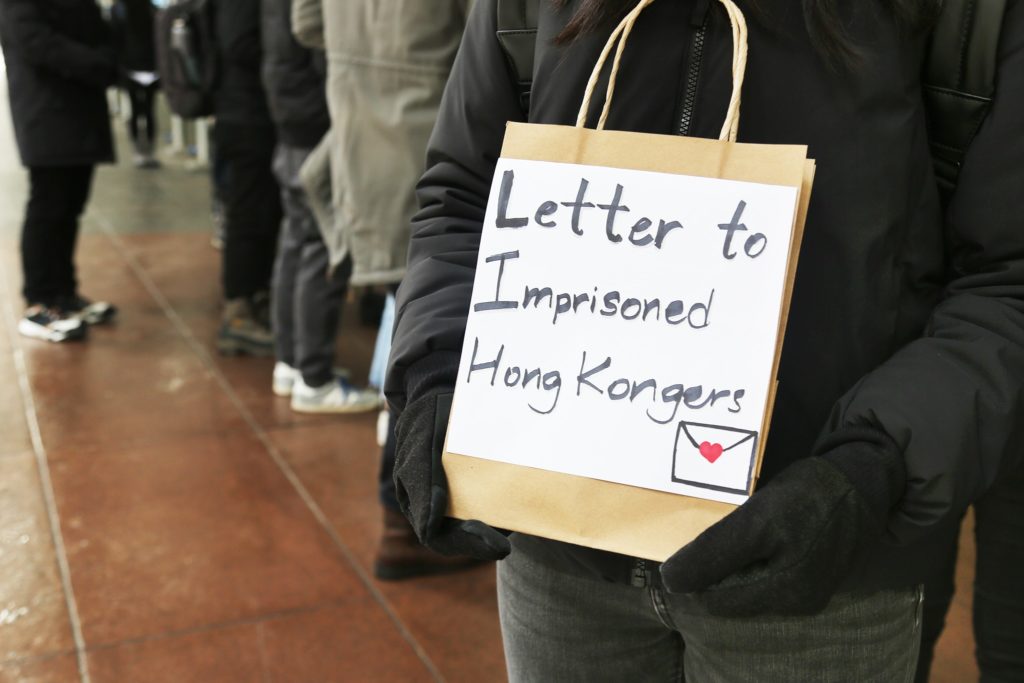 Letter to
Imprisoned
Hong Kongers